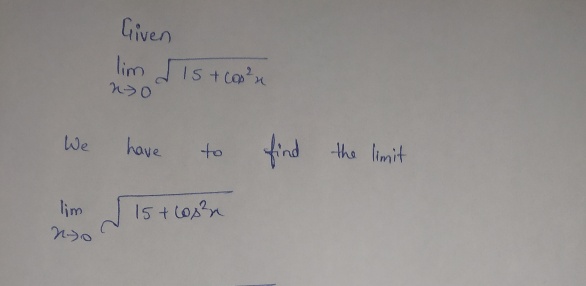 Given
lim x→0 √15 + cos²x
We have to find the limit
lim x→0 √15 + cos²x